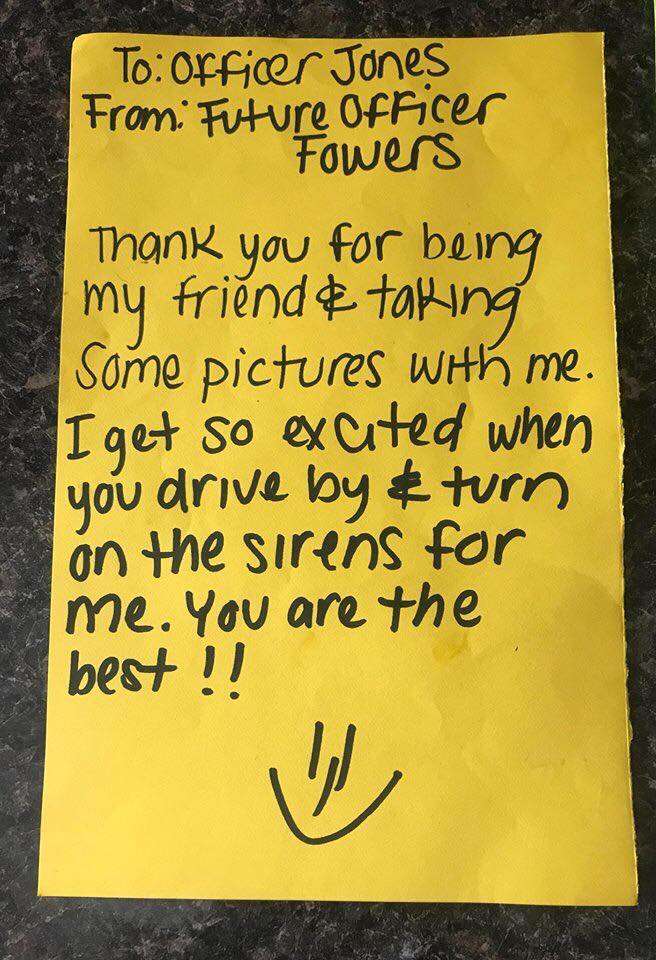 To: Officer Jones
From: Future Officer
Fowers
Thank you for being
my friend & taking
some pictures with me.
I get so excited when
you drive by & turn
on the sirens for
me. You are the
best !!